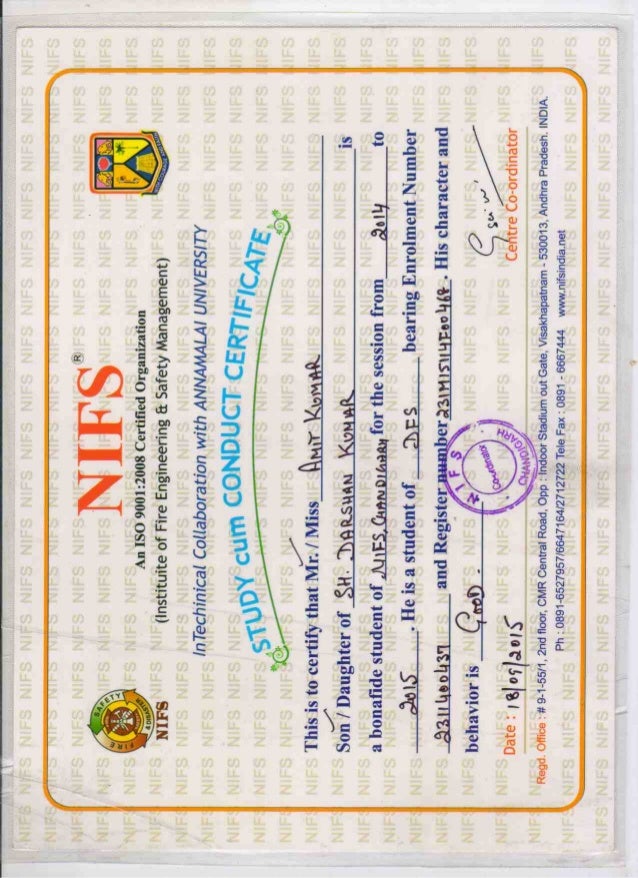 NIFS®
An ISO 9001:2008 Certified Organization
(Instituite of Fire Engineering & Safety Management)
FIRE SAFETY
NIFS
InTechinical Collaboration with ANNAMALAI UNIVERSITY
STUDY cum CONDUCT CERTIFICATE
This is to certify that Mr. / Miss AMIT KUMAR
Son / Daughter of SH. DARSHAN KUMAR is
a bonafide student of NIFS, CHANDIGHARH for the session from 2014 to
2015. He is a student of DFS bearing Enrolment Number
2311400437 and Register number 231M15114E00468. His character and
behavior is GOOD.
NIFS
Coordinator
CHANDIGARH
Date : 18/09/2015
Centre Co-ordinator
Regd. Office : # 9-1-55/1, 2nd floor, CMR Central Road, Opp : Indoor Stadium out Gate, Visakhapatnam - 530013, Andhra Pradesh. INDIA.
Ph : 0891-6527957/6647164/2712722 Tele Fax : 0891 - 6667444 www.nifsindia.net